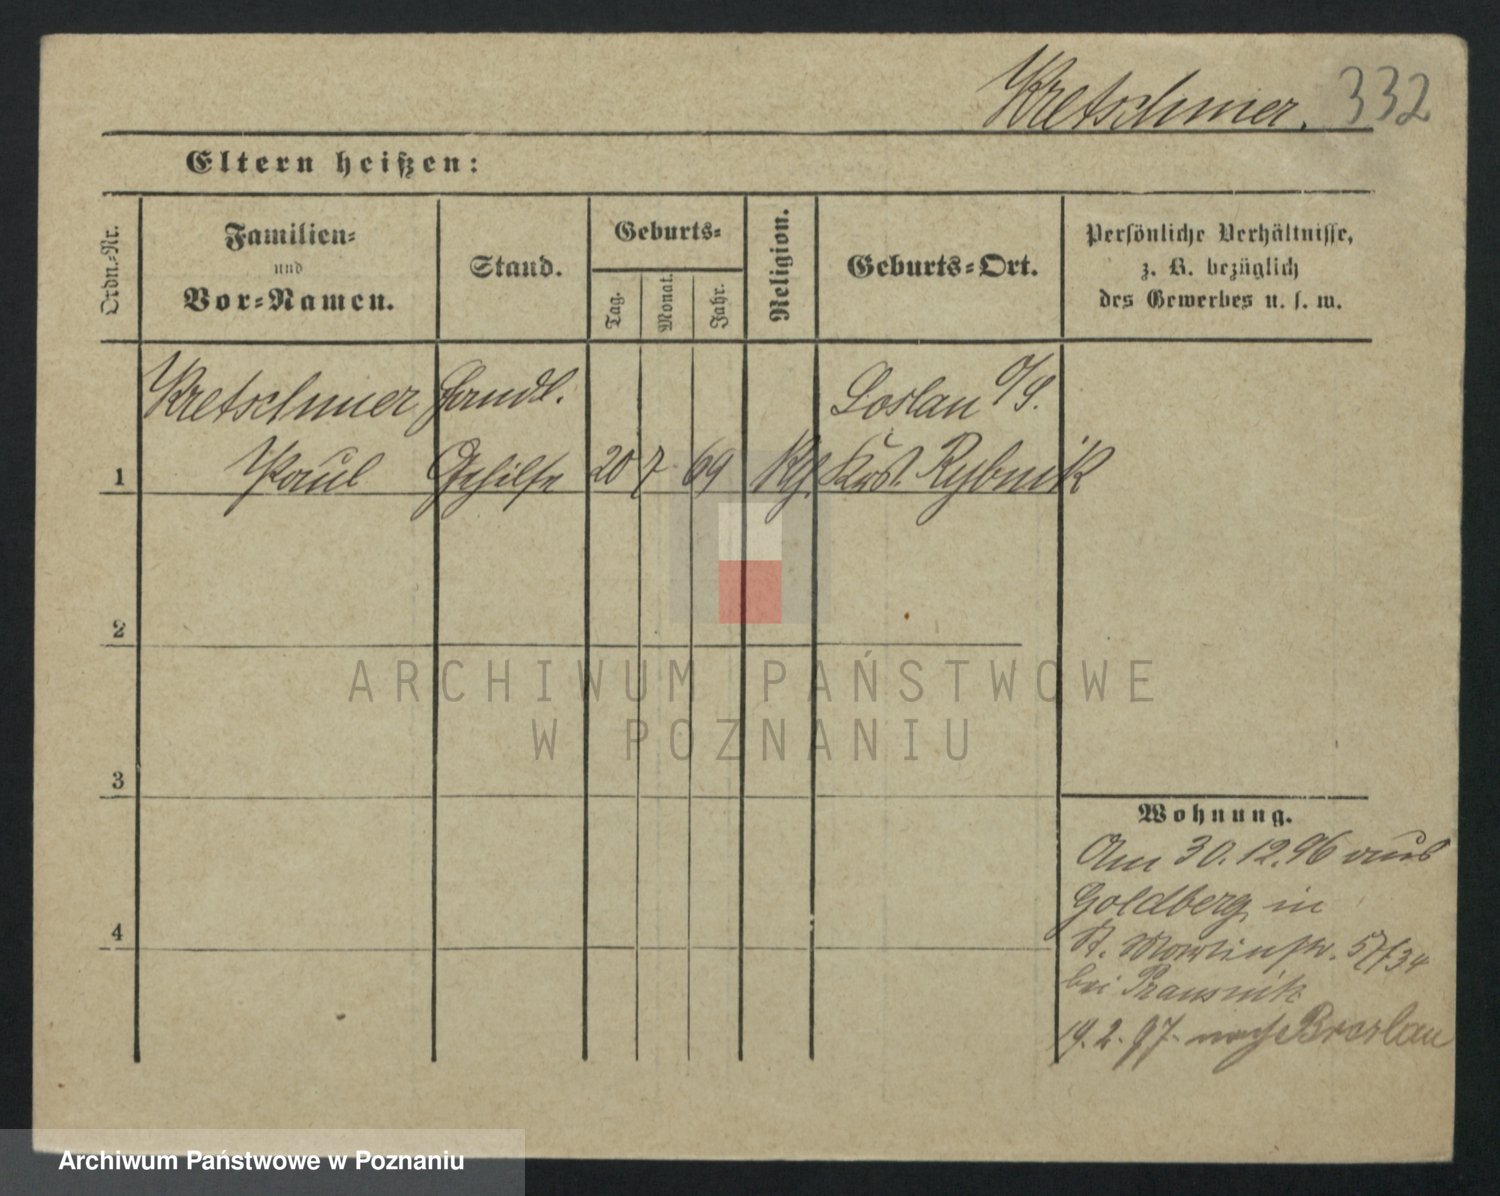 Kretschmer. 332
Eltern heißen:
Ordn.-Nr.
Familien-
und
Vor-Namen.
Stand.
Geburts-
Tag.
Monat.
Jahr.
Religion.
Geburts-Ort.
Persönliche Verhältnisse,
z. B. bezüglich
des Gewerbes u. s. w.
Kretschmer Handl. Loslau O/S.
1 Paul Gehilfe 20 7 69 Kth. Kr. Rybnik
2
3
4
Wohnung.
Am 30.12.96 aus
Goldberg in
St. Martinstr. 57/34
bei Prausnitz
19.2.97. nach Breslau
ARCHIWUM PAŃSTWOWE
W POZNANIU
Archiwum Państwowe w Poznaniu